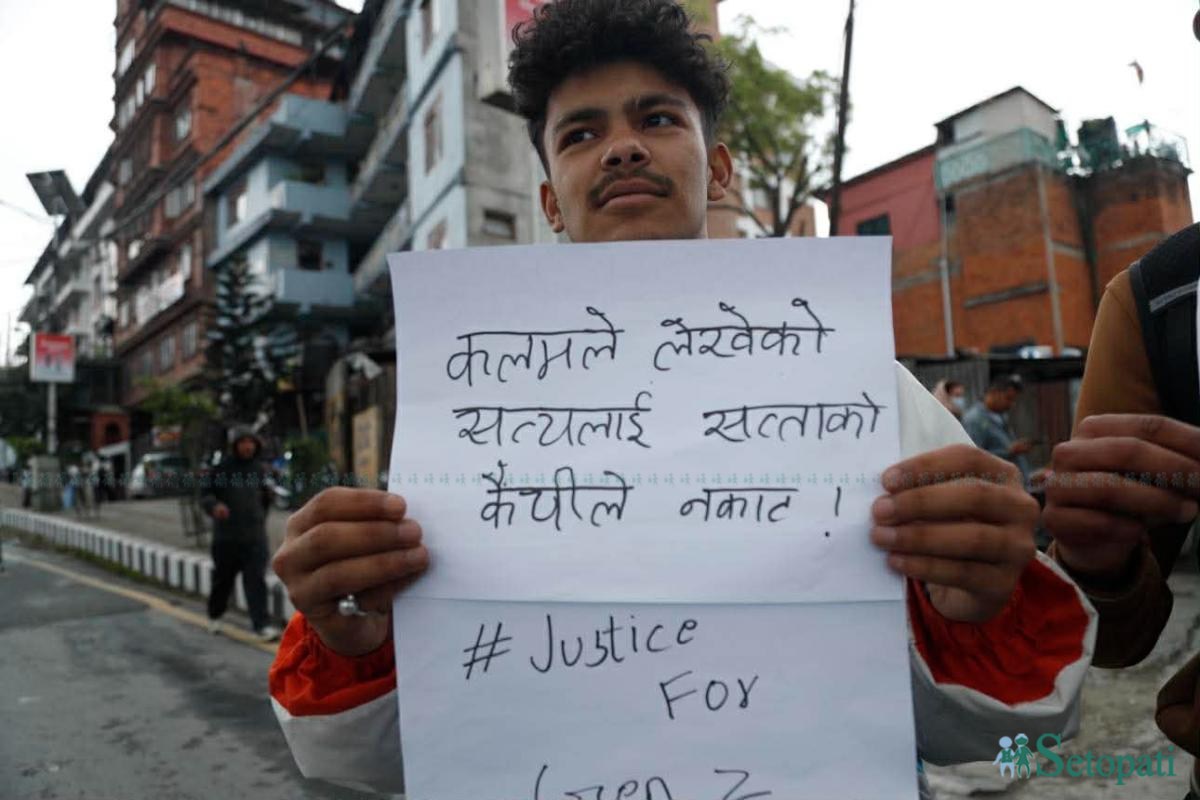 कलमले लेखेको
सत्यलाई सत्ताको
कैंचीले नकाट !
# Justice
For
Gen Z
Setopati